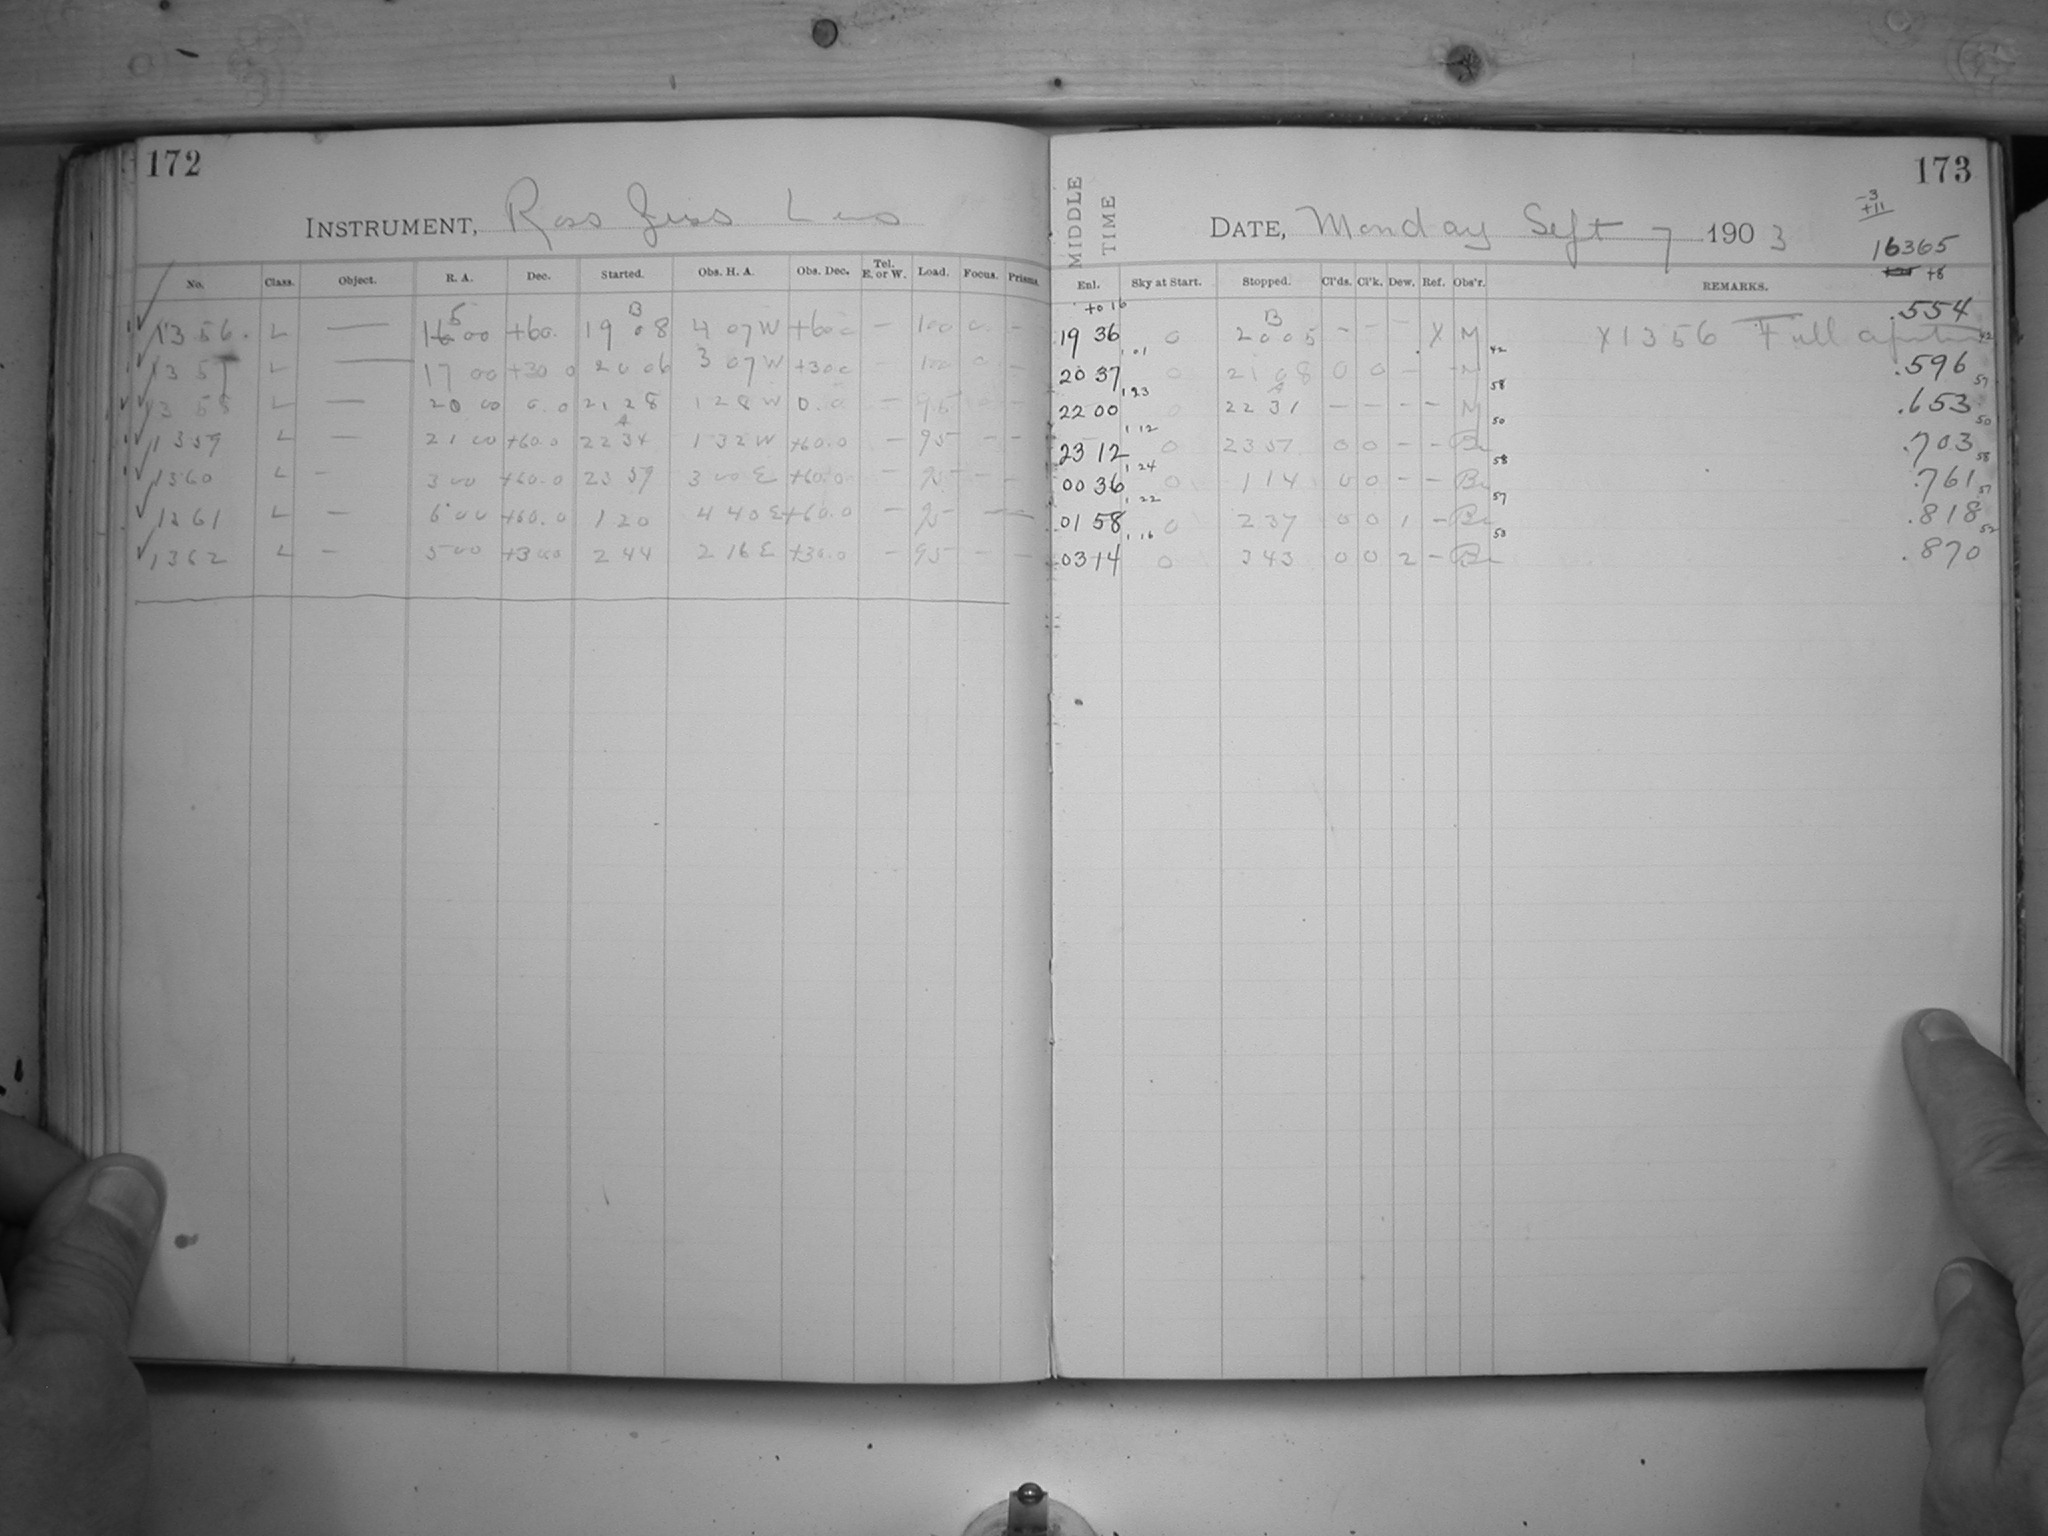 172
INSTRUMENT, Ross Zeiss Lens
No. Class. Object. R. A. Dec. Started. Obs. H. A. Obs. Dec. Tel. E. or W. Load. Focus. Prisms.
5 B
1356. L — 16 00 +60. 19 08 4 07 W +60 0 — 100 0 —
1357 L — 17 00 +30 0 20 06 3 07 W +30 0 — 100 0 —
1358 L — 20 00 0.0 21 28 1 28 W 0. 0 — 95
1359 L — 21 00 +60.0 22 34 1 32 W +60.0 — 95 — —
1360 L — 3 00 +60.0 23 59 3 00 E +60.0 — 95 — —
1361 L — 6 00 +60.0 1 20 4 40 E +60.0 — 95 — —
1362 L — 5 00 +30.0 2 44 2 16 E +30.0 — 95 — —
173
MIDDLE TIME
DATE, Monday Sept 7 1903
-3
+11
16365
+8
Enl. Sky at Start. Stopped. Cl'ds. Cl'k. Dew. Ref. Obs'r. REMARKS.
+0 16 B .554
19 36 0 20 05 — — — X M X 1356 Full aperture 42
1 01 42
20 37 0 21 08 0 0 — M .596 57
1 23 58
22 00 0 22 31 — — — — M .653 50
1 12 50
23 12 0 23 57 0 0 — — Br .703 58
1 24 58
00 36 0 1 14 0 0 — — Br .761 57
1 22 57
01 58 0 2 37 0 0 1 — Br .818 52
1 16 53
03 14 0 3 43 0 0 2 — Br .870